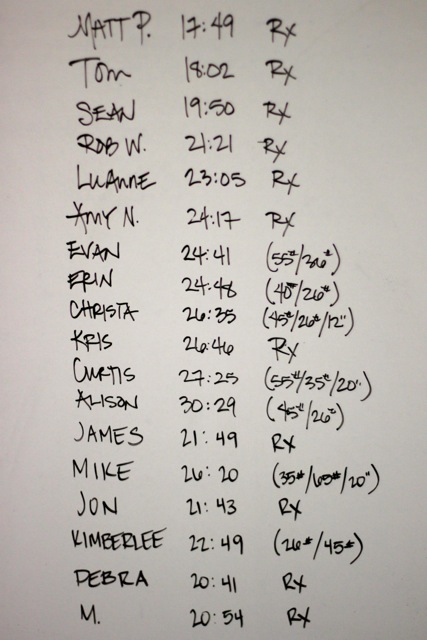 MATT P. 17:49 Rx
Tom 18:02 Rx
SEAN 19:50 Rx
ROB W. 21:21 Rx
LUANNE 23:05 Rx
AMY N. 24:17 Rx
EVAN 24:41 (55#/26#)
ERIN 24:48 (40#/26#)
CHRISTA 26:35 (45#/26#/12")
KRIS 26:46 Rx
CURTIS 27:25 (55#/35#/20")
ALISON 30:29 (45#/26#)
JAMES 21:49 Rx
MIKE 26:20 (35#/65#/20")
JON 21:43 Rx
KIMBERLEE 22:49 (26#/45#)
DEBRA 20:41 Rx
M. 20:54 Rx